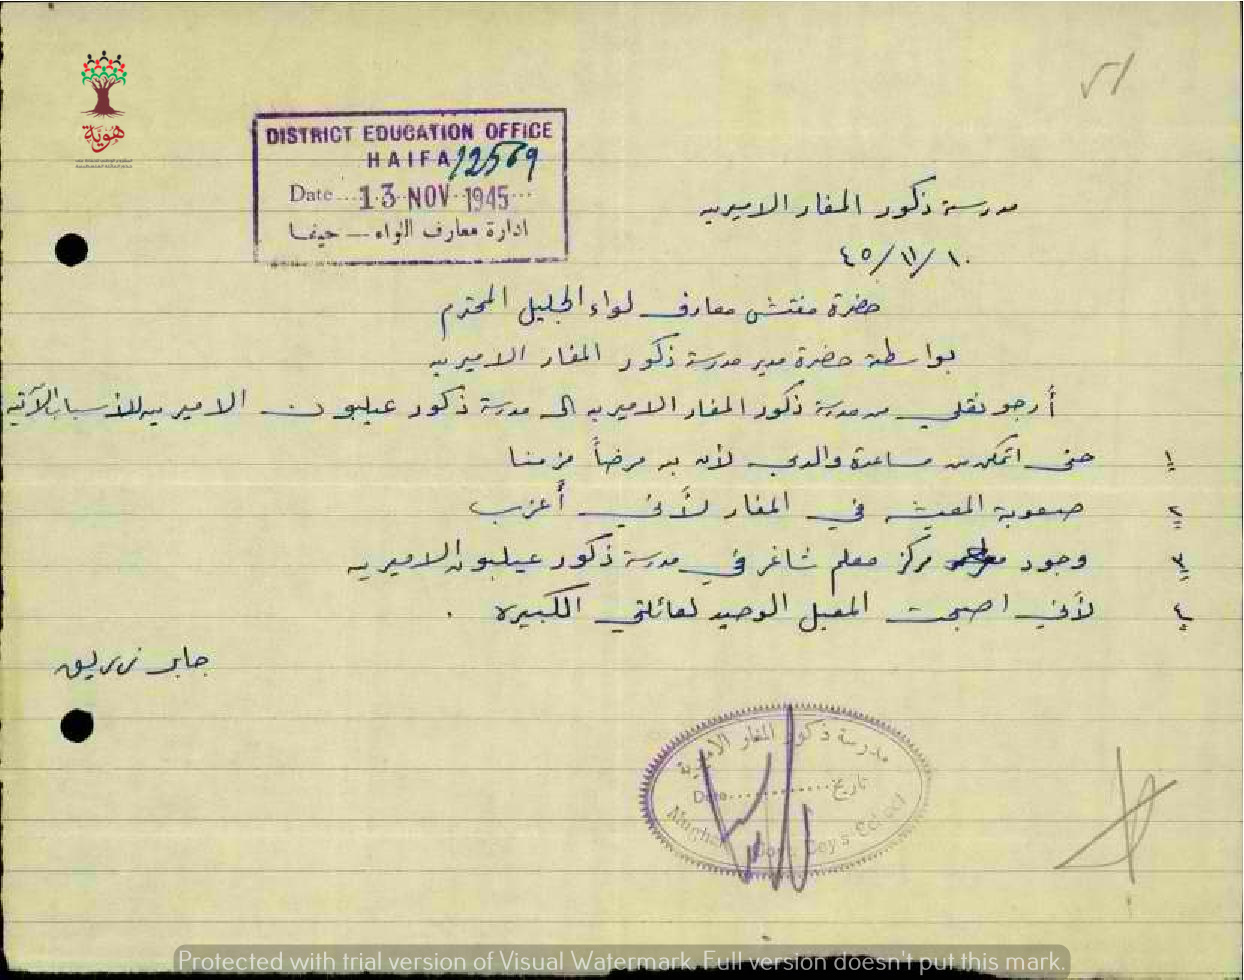 ٥١
هوية
DISTRICT EDUCATION OFFICE
HAIFA 12569
Date....13 NOV 1945...
ادارة معارف اللواء — حيفا
مدرسة ذكور المغار الاميريه
٤٥/١١/١٠
حضرة مفتش معارف لواء الجليل المحترم
بواسطة حضرة مدير مدرسة ذكور المغار الاميريه
أرجو نقلي من مدرسة ذكور المغار الاميريه الى مدرسة ذكور عيلبون الاميريه للأسباب الآتيه
١ حتى اتمكن من مساعدة والدي لأن به مرضاً مزمنا
٢ صعوبة المعيشه في المغار لأني أعزب
٣ وجود مركز معلم شاغر في مدرسة ذكور عيلبون الاميريه
٤ لأني اصبحت المعيل الوحيد لعائلتي الكبيره .
جابر زريق
مدرسة ذكور المغار الاميرية
Date............تاريخ
Mughar Boys School
Protected with trial version of Visual Watermark. Full version doesn't put this mark.